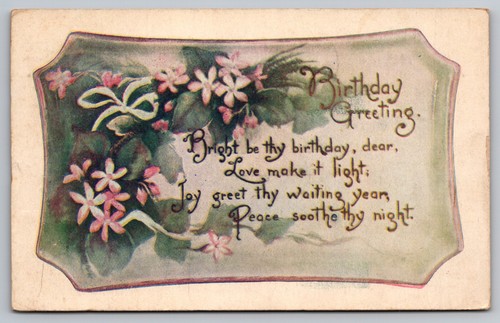 Birthday
Greeting.
Bright be thy birthday, dear,
Love make it light;
Joy greet thy waiting year,
Peace soothe thy night.